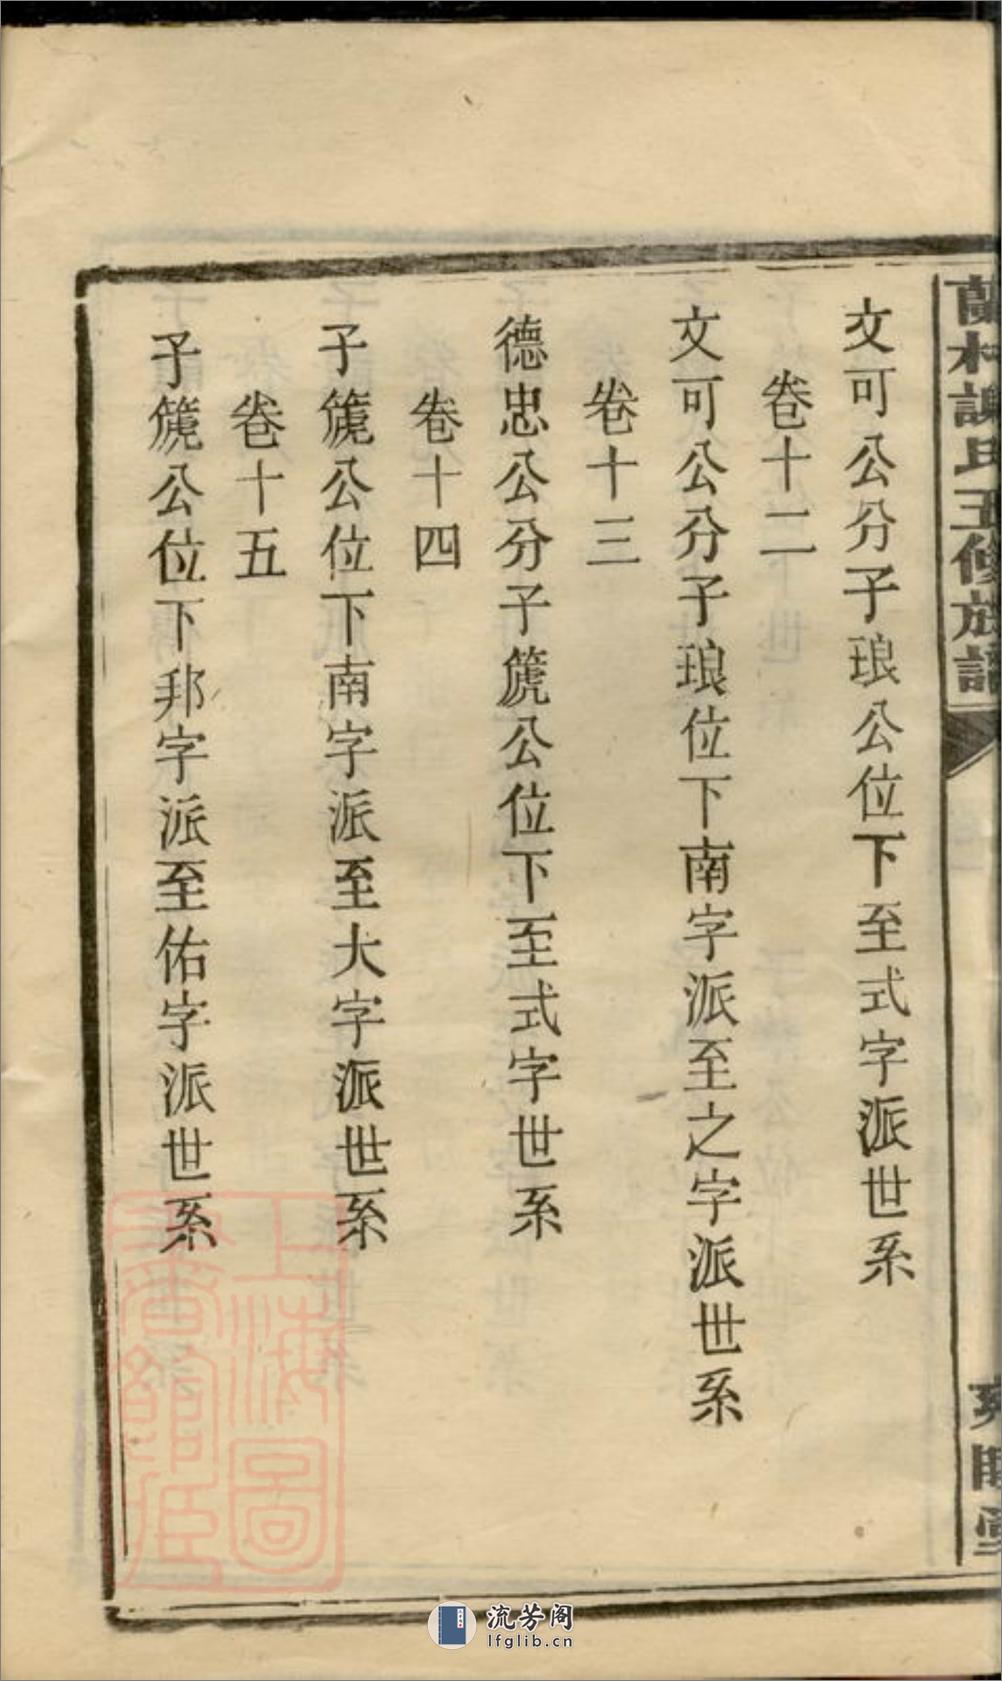 文可公分子琅公位下至式字派世系
卷十二
文可公分子琅位下南字派至之字派世系
卷十三
德忠公分子篪公位下至式字世系
卷十四
子篪公位下南字派至大字派世系
卷十五
子篪公位下邦字派至佑字派世系
上海圖書館藏
流芳阁
lfglib.cn